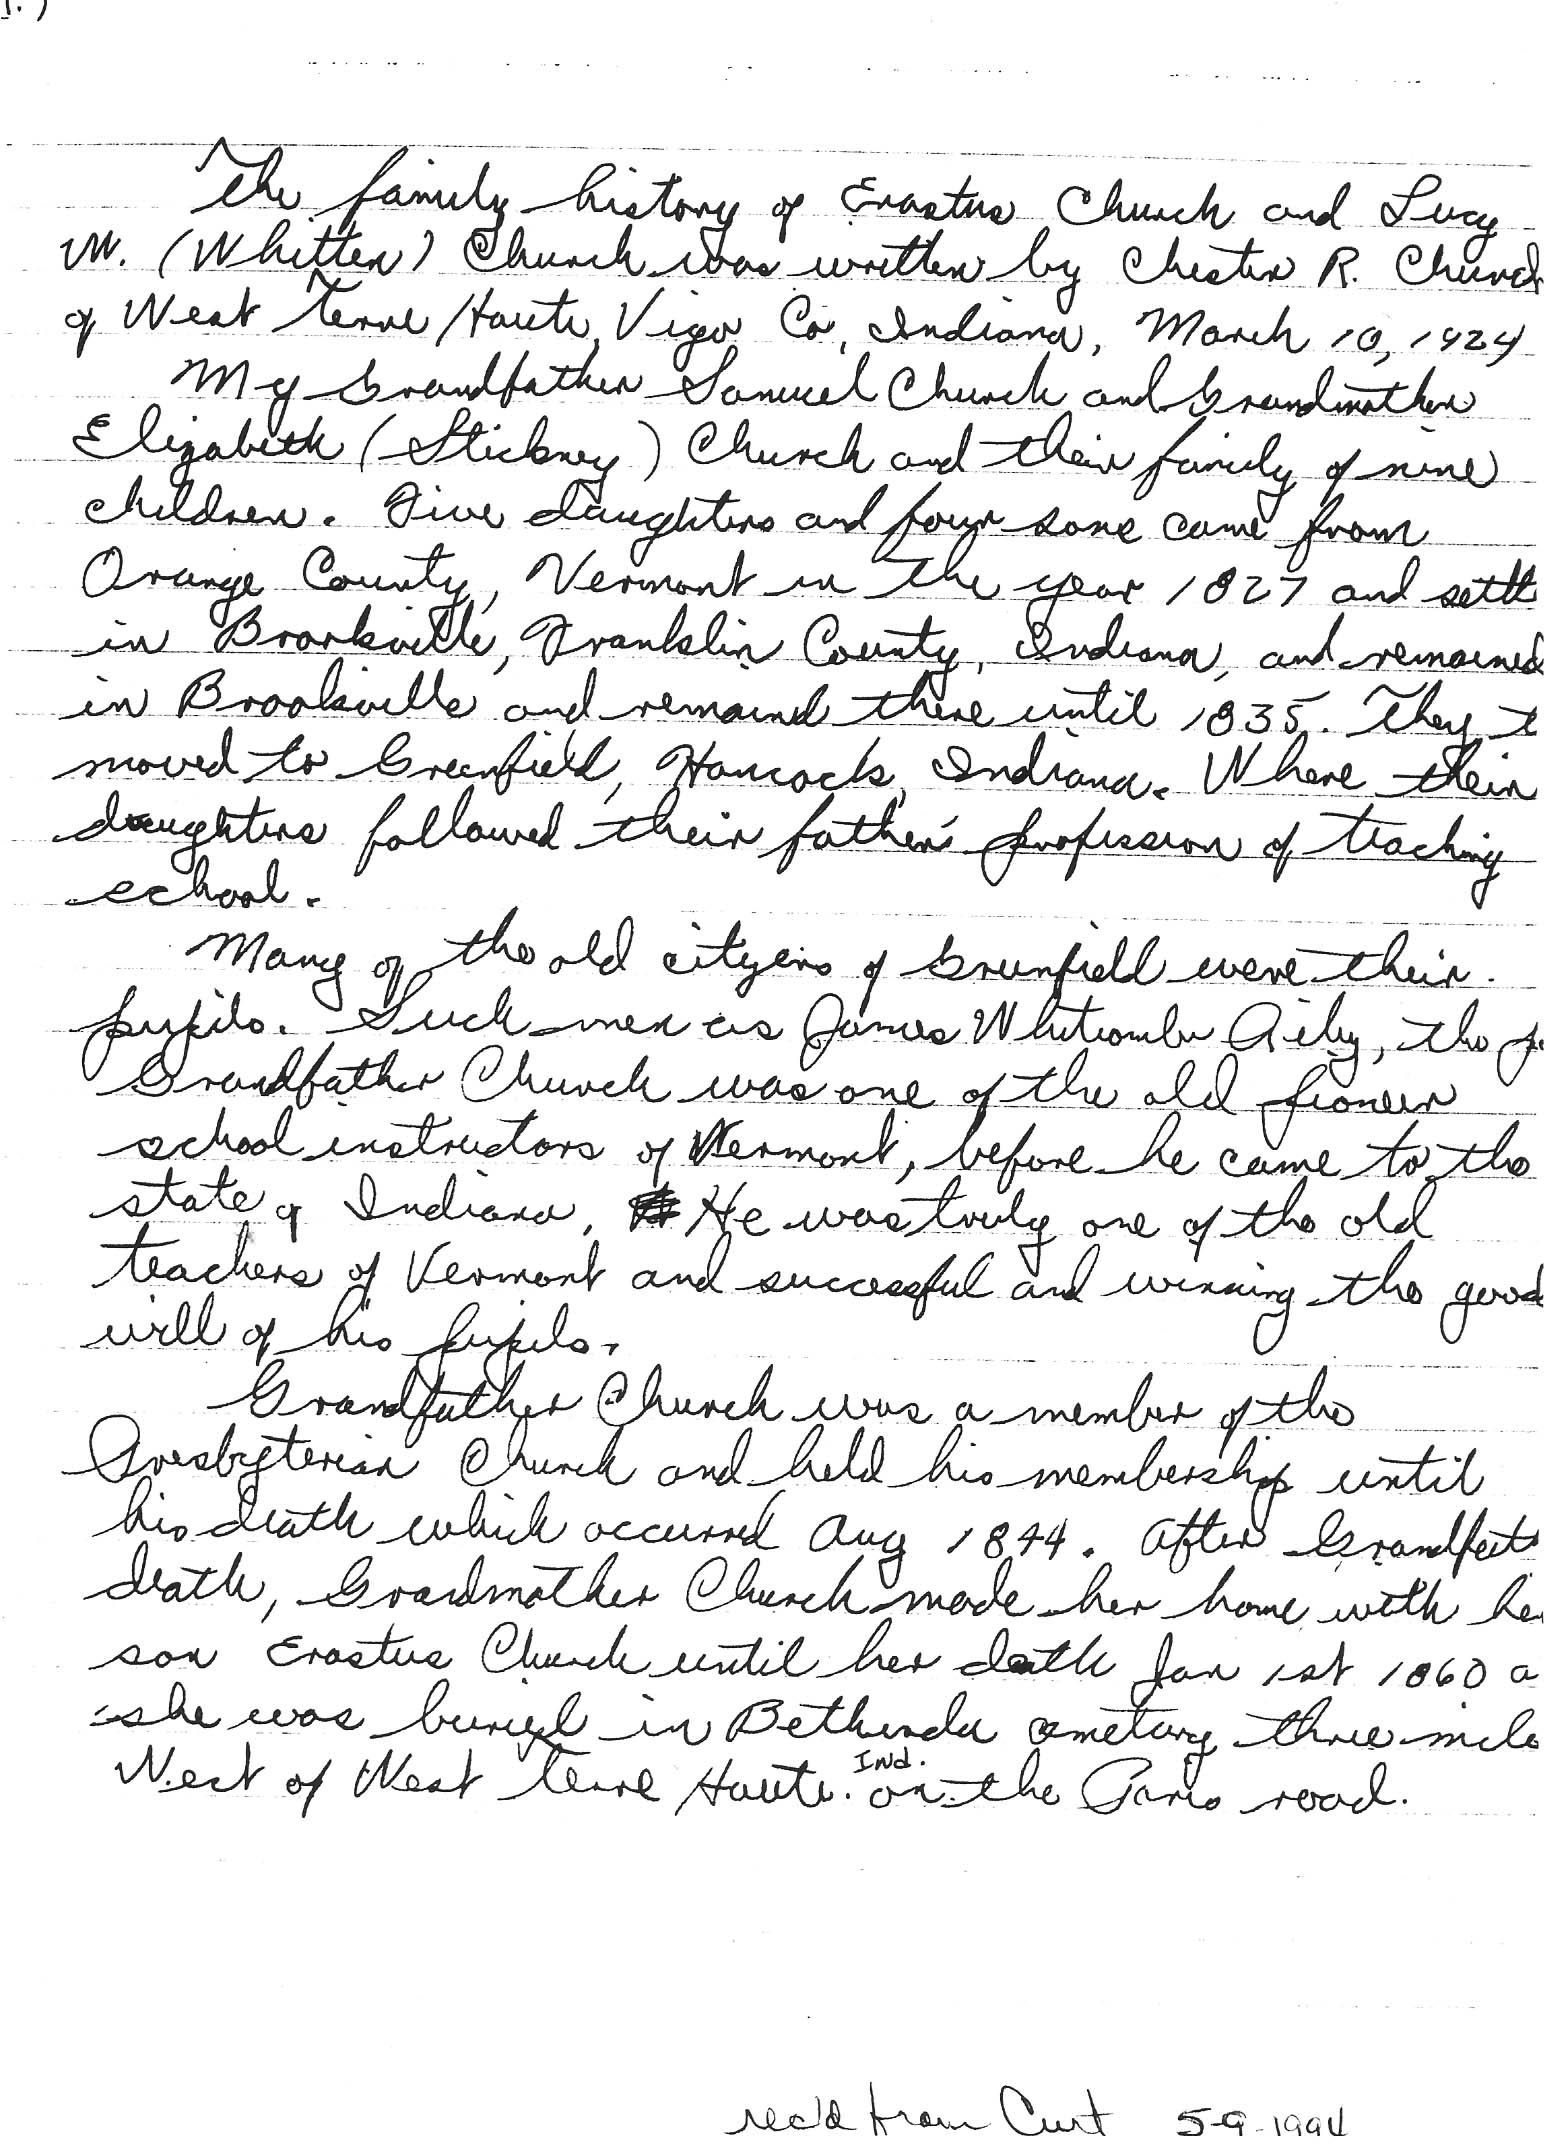 1.)
The family history of Erastus Church and Lucy
M. (Whitten) Church was written by Chester R. Church
of West Terre Haute, Vigo Co, Indiana, March 10, 1924
My Grandfather Samuel Church and Grandmother
Elizabeth (Stickney) Church and their family of nine
children. Five daughters and four sons came from
Orange County, Vermont in the year 1827 and settl
in Brooksville, Franklin County, Indiana, and remained
in Brooksville and remaind there until 1835. They t
moved to Greenfield, Hancock, Indiana. Where their
daughters followed their father's profession of teaching
school.
Many of the old cityzens of Greenfield were their
pupils. Such men as James Whitcombe Riley, the p
Grandfather Church was one of the old pioneer
school instructors of Vermont, before he came to the
state of Indiana, He was truly one of the old
teachers of Vermont and successful and winning the good
will of his pupils.
Grandfather Church was a member of the
Presbyterian Church and held his membership until
his death which occurred Aug 1844. After Grandfath
death, Grandmother Church made her home with her
son Erastus Church until her death Jan 1st 1860 a
she was buried in Bethesda cemetary three mile
West of West Terre Haute. Ind. on the Paris road.
rec'd from Curt 5-9-1994